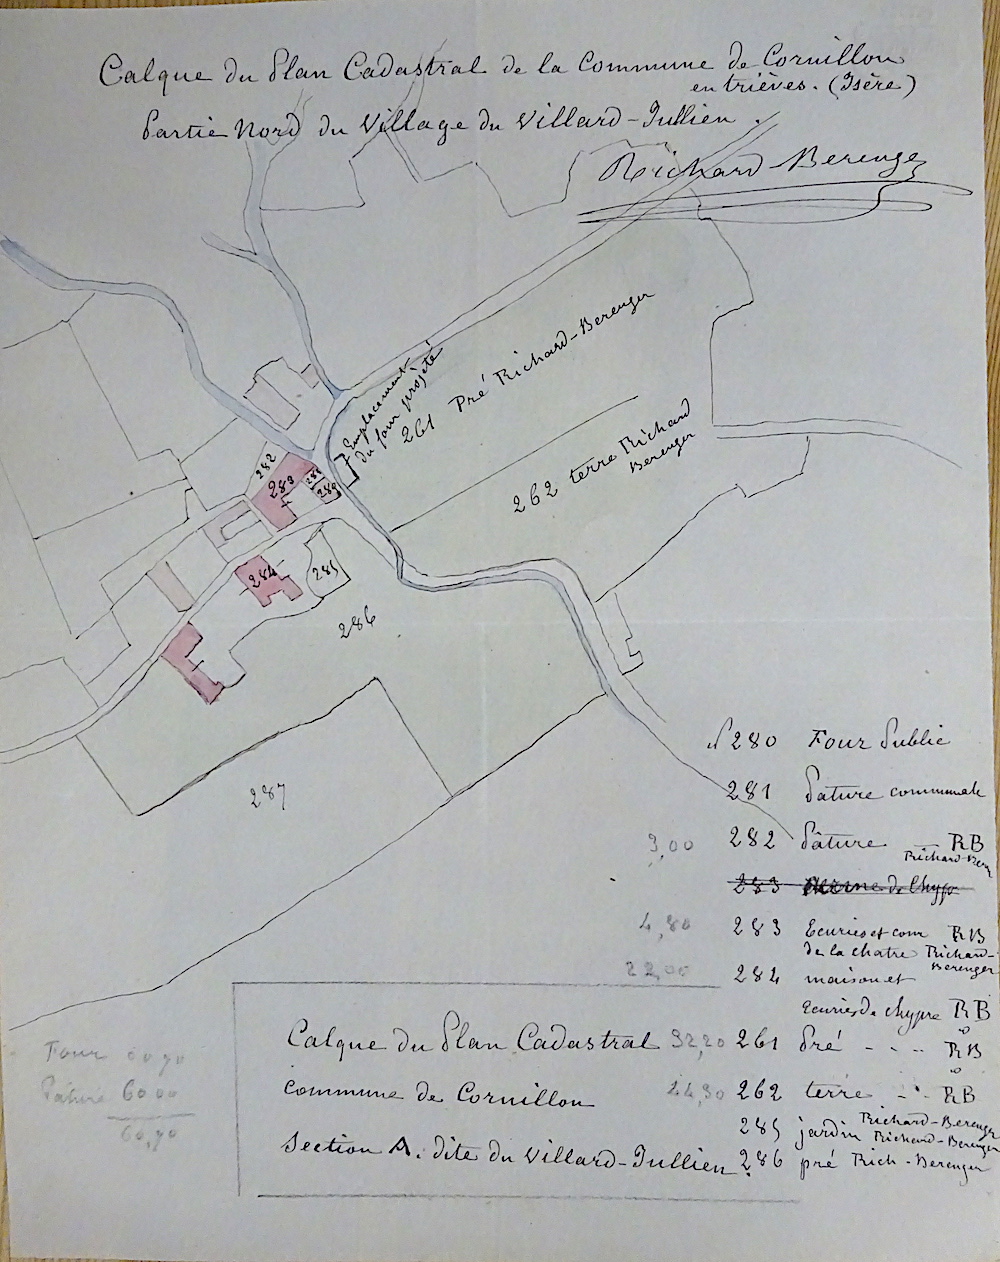 Calque du Plan Cadastral de la Commune de Cornillon
en trièves. (Isère)
Partie Nord du Village du Villard-Jullien.
Richard Berenger
Emplacement
du four projeté
261 Pré Richard-Berenger
262 terre Richard
Berenger
282
283
281
280
284
285
286
287
n° 280 Four Public
281 Pature communale
3,00 282 Pâture — RB
Richard-Berenger
283
4,80 283 Ecuries et cour RB
de la chatre Richard-
Berenger
22,00 284 maison et
Ecuries de chypre RB
32,20 261 Pré - - - RB
24,30 262 terre - - RB
285 jardin Richard-Berenger
Richard-Berenger
286 pré Rich-Berenger
Calque du Plan Cadastral
commune de Cornillon
Section A. dite du Villard-Jullien
Four 00 90
Pature 60 00
60,90